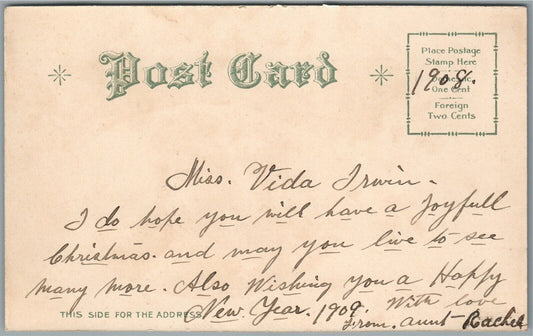 Post Card
Place Postage
Stamp Here
Domestic
One Cent
Foreign
Two Cents
1908.
Miss. Vida Irwin -
I do hope you will have a Joyfull
Christmas. and may you live to see
many more. Also Wishing you a Happy
New Year. 1909. With love
THIS SIDE FOR THE ADDRESS
From. aunt Rachel